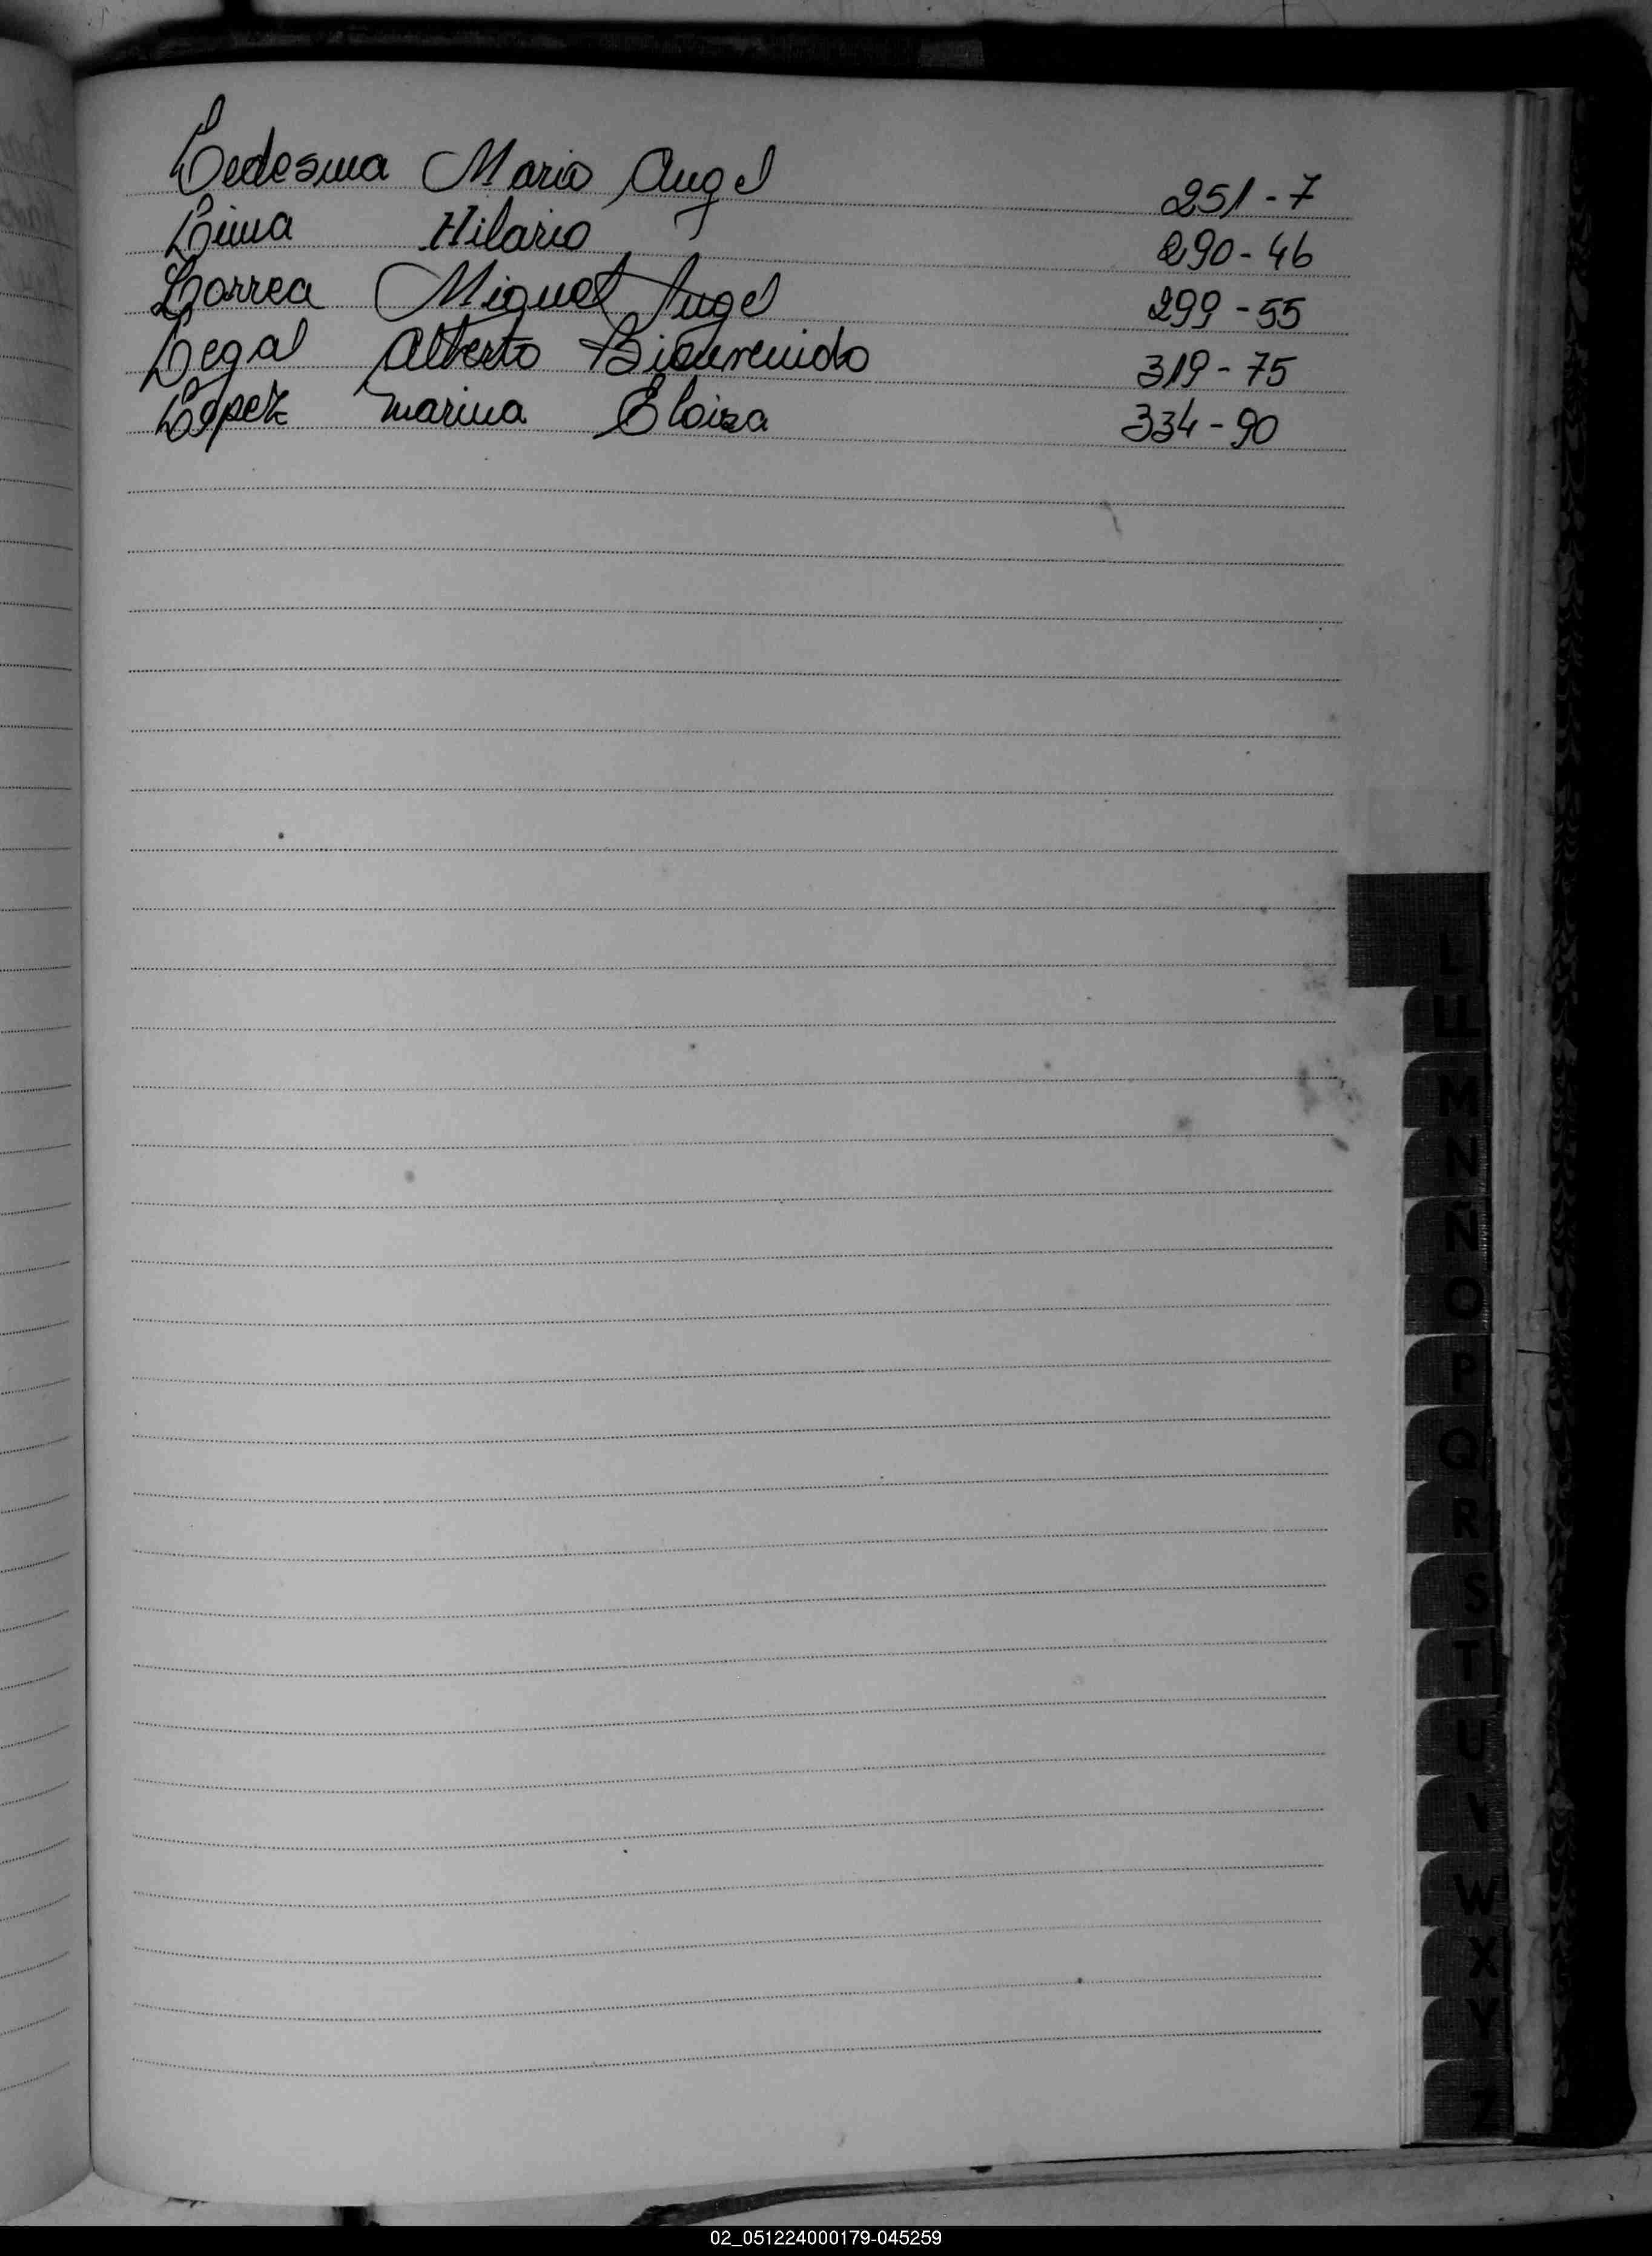 Ledesma Mario Angel 251-7
Lima Hilario 290-46
Larrea Miguel Angel 299-55
Legal Alberto Bienvenido 319-75
Lopez Marina Eloiza 334-90
L
LL
M
N
Ñ
O
P
Q
R
S
T
U
V
W
X
Y
Z
02_051224000179-045259